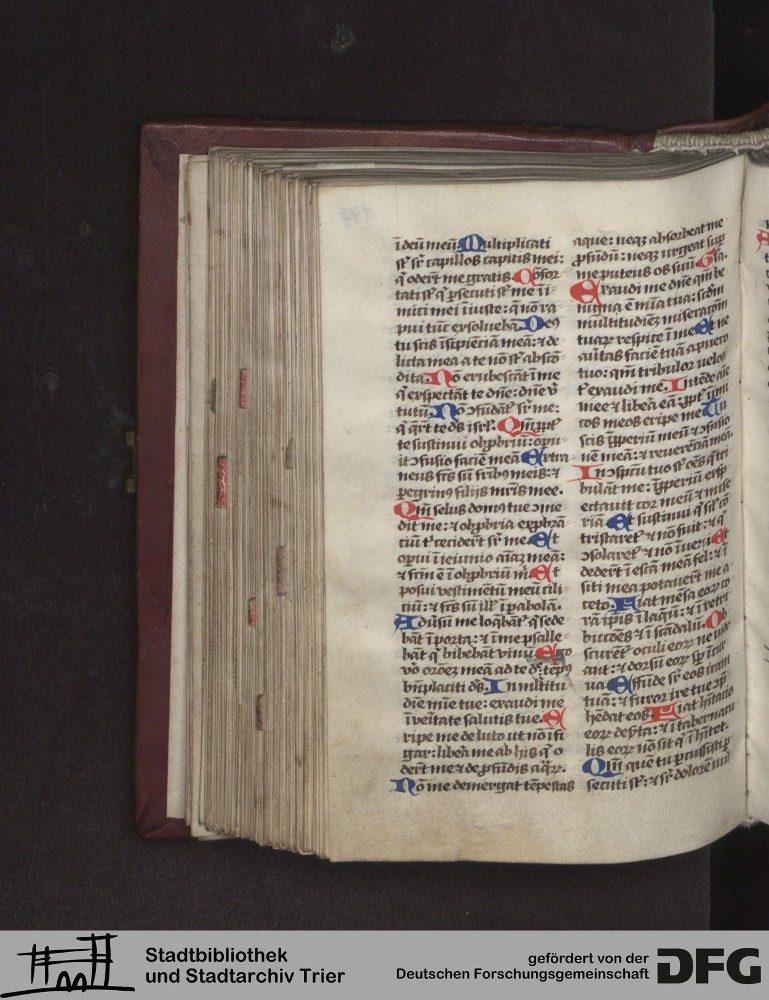 ī deū meū. Multiplicati
sūt sr̄ capillos capitis mei:
q̄ oderūt me gratis. Cōfor
tati sūt q̄ ꝑsecuti sūt me ī
mici mei īiuste: q̄ nō ra
pui tūc exsoluebā. Deus
tu scis īsipiēciā meā: ⁊ de
licta mea a te nō sūt abscō
dita. Nō erubescāt ī me
q̄ exspectāt te dn̄e: dn̄e v̄
tutū. Nō ↄfūdāt̄ sr̄ me:
q̄ q̄rūt te ds̄ isrl̄. Qm̄ ꝓpt̄
te sustinui obꝓbriū: oꝑu
it ↄfusio faciē meā. Extra
neus fcūs sū fribꝫ meis: ⁊
peregrinꝰ filijs mr̄is mee.
Qm̄ zelus domꝰ tue ↄme
dit me: ⁊ obꝓbria exprobrā
ciū t' ceciderūt sr̄ me. Et
oꝑui ī ieiunio aīaꝫ meā:
⁊ fcm̄ ē ī obꝓbriū m̄. Et
posui vestimētū meū cili
ciū: ⁊ fcūs sū ill' ī ꝑabolā.
Aduersū me loq̄bāt̄ q̄ sede
bāt ī porta: ⁊ ī me psalle
bāt q̄ bibebāt vinū. Ego
vō orōeꝫ meā ad te ds̄: tēpꝰ
bn̄placiti ds̄. In mltitu
dīe mīe tue: exaudi me
ī veritate salutis tue. E
ripe me de luto ut nō īfi
gar: libera me ab his q̄ o
derūt me ⁊ de ꝓfūdis aq̄ꝝ.
Nō me demergat tēpestas
aque: neqꝫ absorbeat me
ꝓfūdū: neqꝫ urgeat sup̄
me puteus os suū. Gl'a.
Exaudi me dn̄e qm̄ be
nigna ē mīa tua: scd̄m
multitudinēꝫ miseracōm
tuaꝝ respice ī me. Et ne
au̔tas faciē tuā a puero
tuo: qm̄ tribulor velo
t' exaudi me. Intēde aīe
mee ⁊ libera eā: ꝓpt̄ īimi
cos meos eripe me. Tu
scis īꝓperiū meū ⁊ ↄfusio
nē meā: ⁊ reuerēciā meā.
In ↄspcū tuo sūt oēs q̄ tri
bulāt me: īꝓperiū exsp
ectauit cor meū ⁊ mise
riā. Et sustinui q̄ sil' cō
tristaret̄ ⁊ nō fuit: ⁊ q̄
ↄsolaret̄ ⁊ nō īueni. Et
dederūt ī escā meā fel: ⁊ ī
siti mea potauerūt me a
ceto. Fiat mesa eoꝝ co
rā ip̄is ī laq̄ū: ⁊ ī retri
bucōes ⁊ ī scādalū. Ob
scurēt̄ oculi eoꝝ ne vide
ant: ⁊ dorsū eoꝝ sp̄ īcur
ua. Effūde sr̄ eos iram
tuā: ⁊ furor ire tue ꝯp̄
hēdat eos. Fiat hītacio
eoꝝ dep̄ta: ⁊ ī tabernacu
lis eoꝝ nō sit q̄ īhītet.
Qm̄ quē tu ꝑcussisti ꝑ
secuti sūt: ⁊ sr̄ dolorē vul
Stadtbibliothek
und Stadtarchiv Trier
gefördert von der
Deutschen Forschungsgemeinschaft
DFG